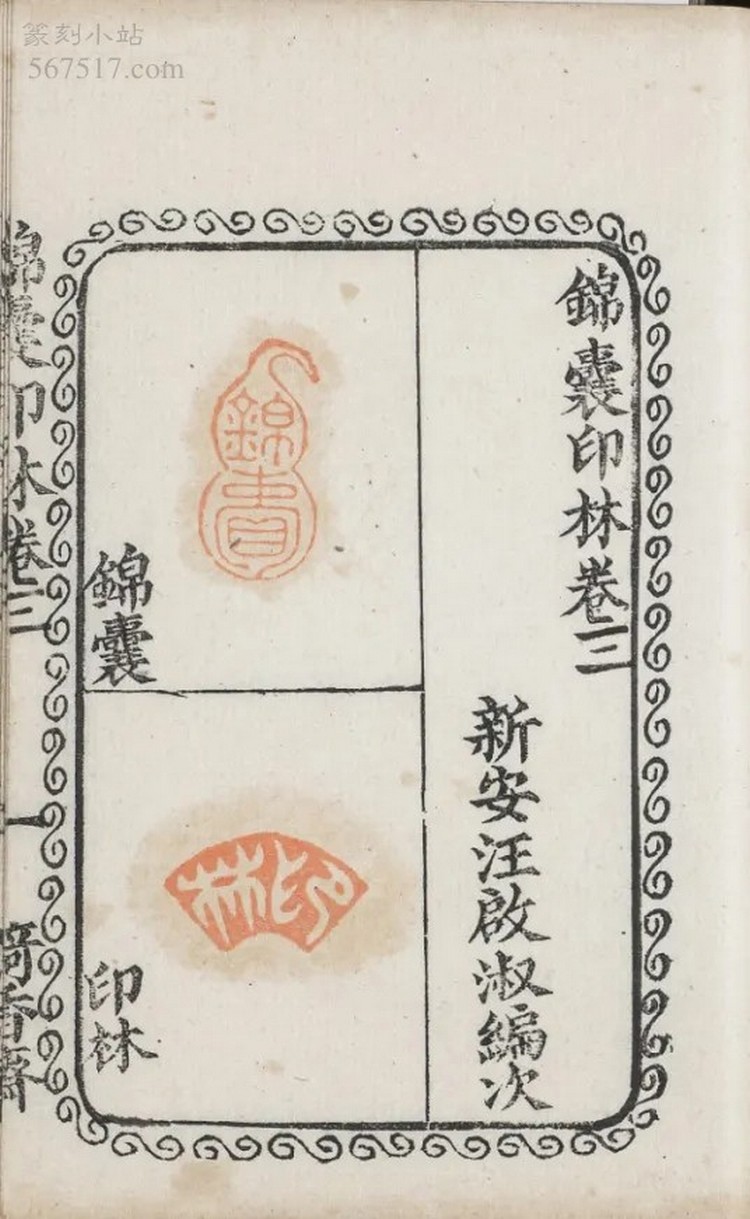 篆刻小站
567517.com
錦囊印林卷三
新安汪啟淑編次
錦囊
錦囊
印林
印林
錦囊印林卷三
一
香齋